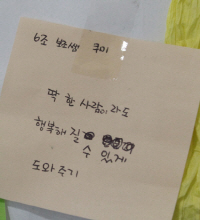 6조 쿠미
딱 한 사람이라도
행복해 질
수 있게
도와주기